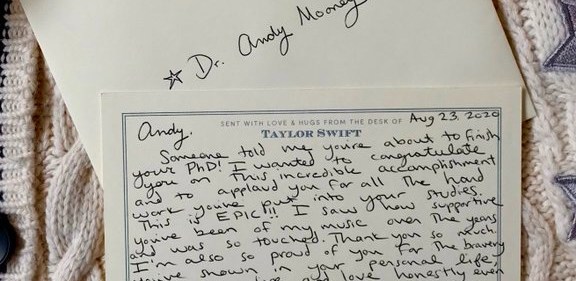 ☆ Dr. Andy Mooney
Aug 23, 2020
SENT WITH LOVE & HUGS FROM THE DESK OF
TAYLOR SWIFT
Andy,
Someone told me you're about to finish
your PhD! I wanted to congratulate
you on this incredible accomplishment
and to applaud you for all the hard
work you've put into your studies.
This is EPIC!! I saw how supportive
you've been of my music over the years
and was so touched. Thank you so much.
I'm also so proud of you for the bravery
you've shown in your personal life,
and love honestly even